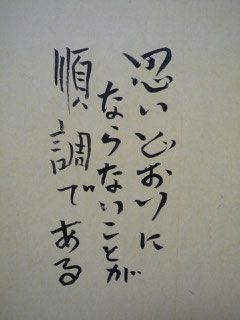 思いどおりに
ならないことが
順調である